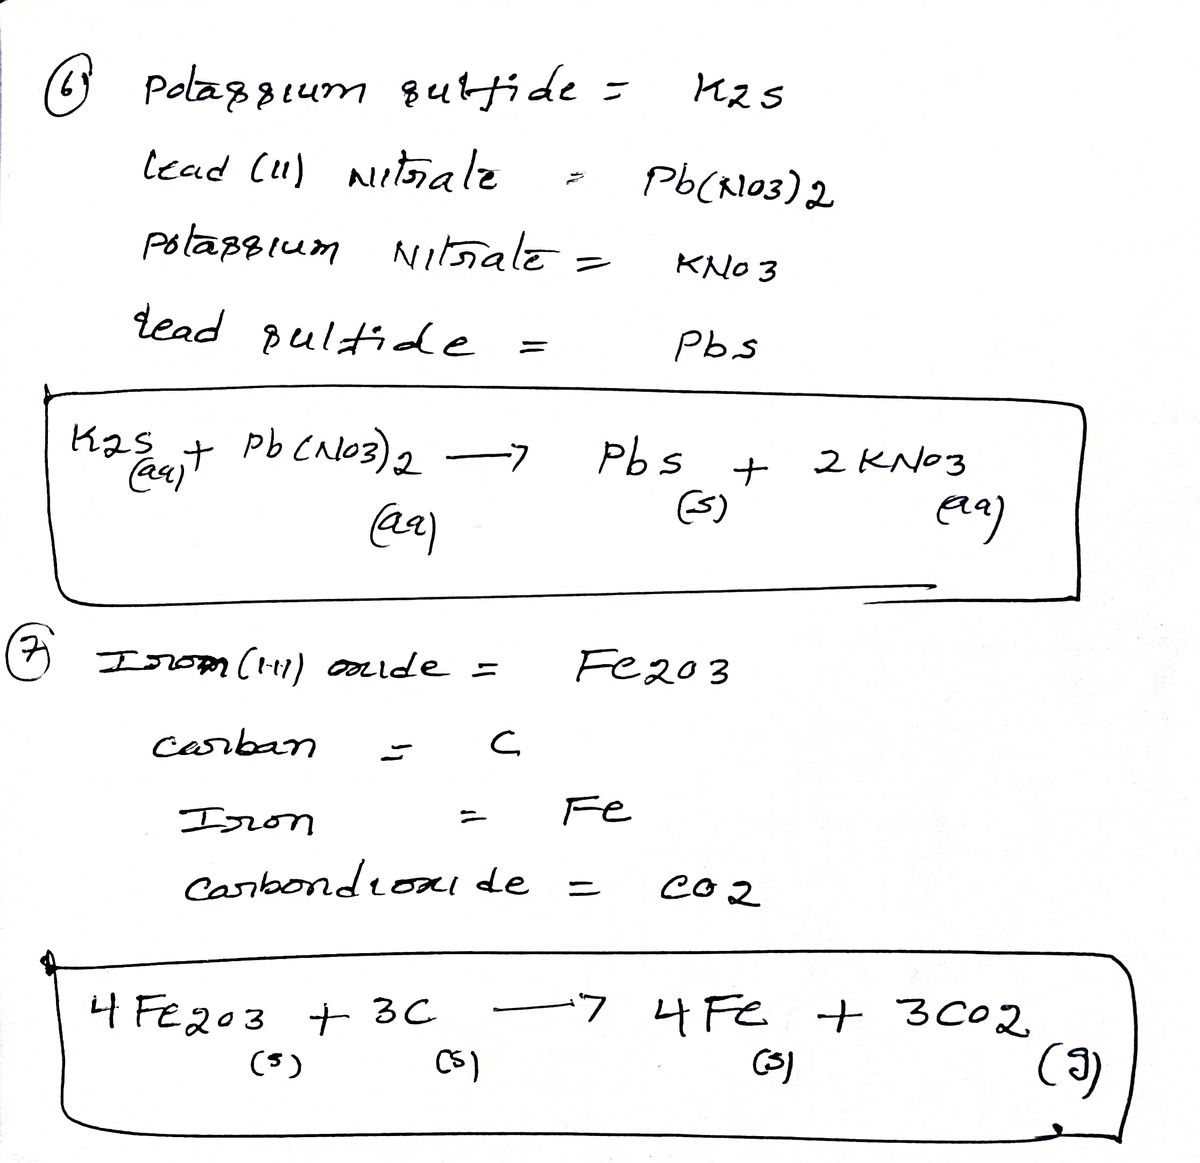 6 Potassium sulfide = K2S
lead (II) Nitrate = Pb(NO3)2
potassium Nitrate = KNO3
lead sulfide = PbS
K2S(aq) + Pb(NO3)2(aq) → PbS(s) + 2KNO3(aq)
7 Iron(III) oxide = Fe2O3
carban = C
Iron = Fe
carbondioxide = CO2
4Fe2O3(s) + 3C(s) → 4Fe(s) + 3CO2(g)